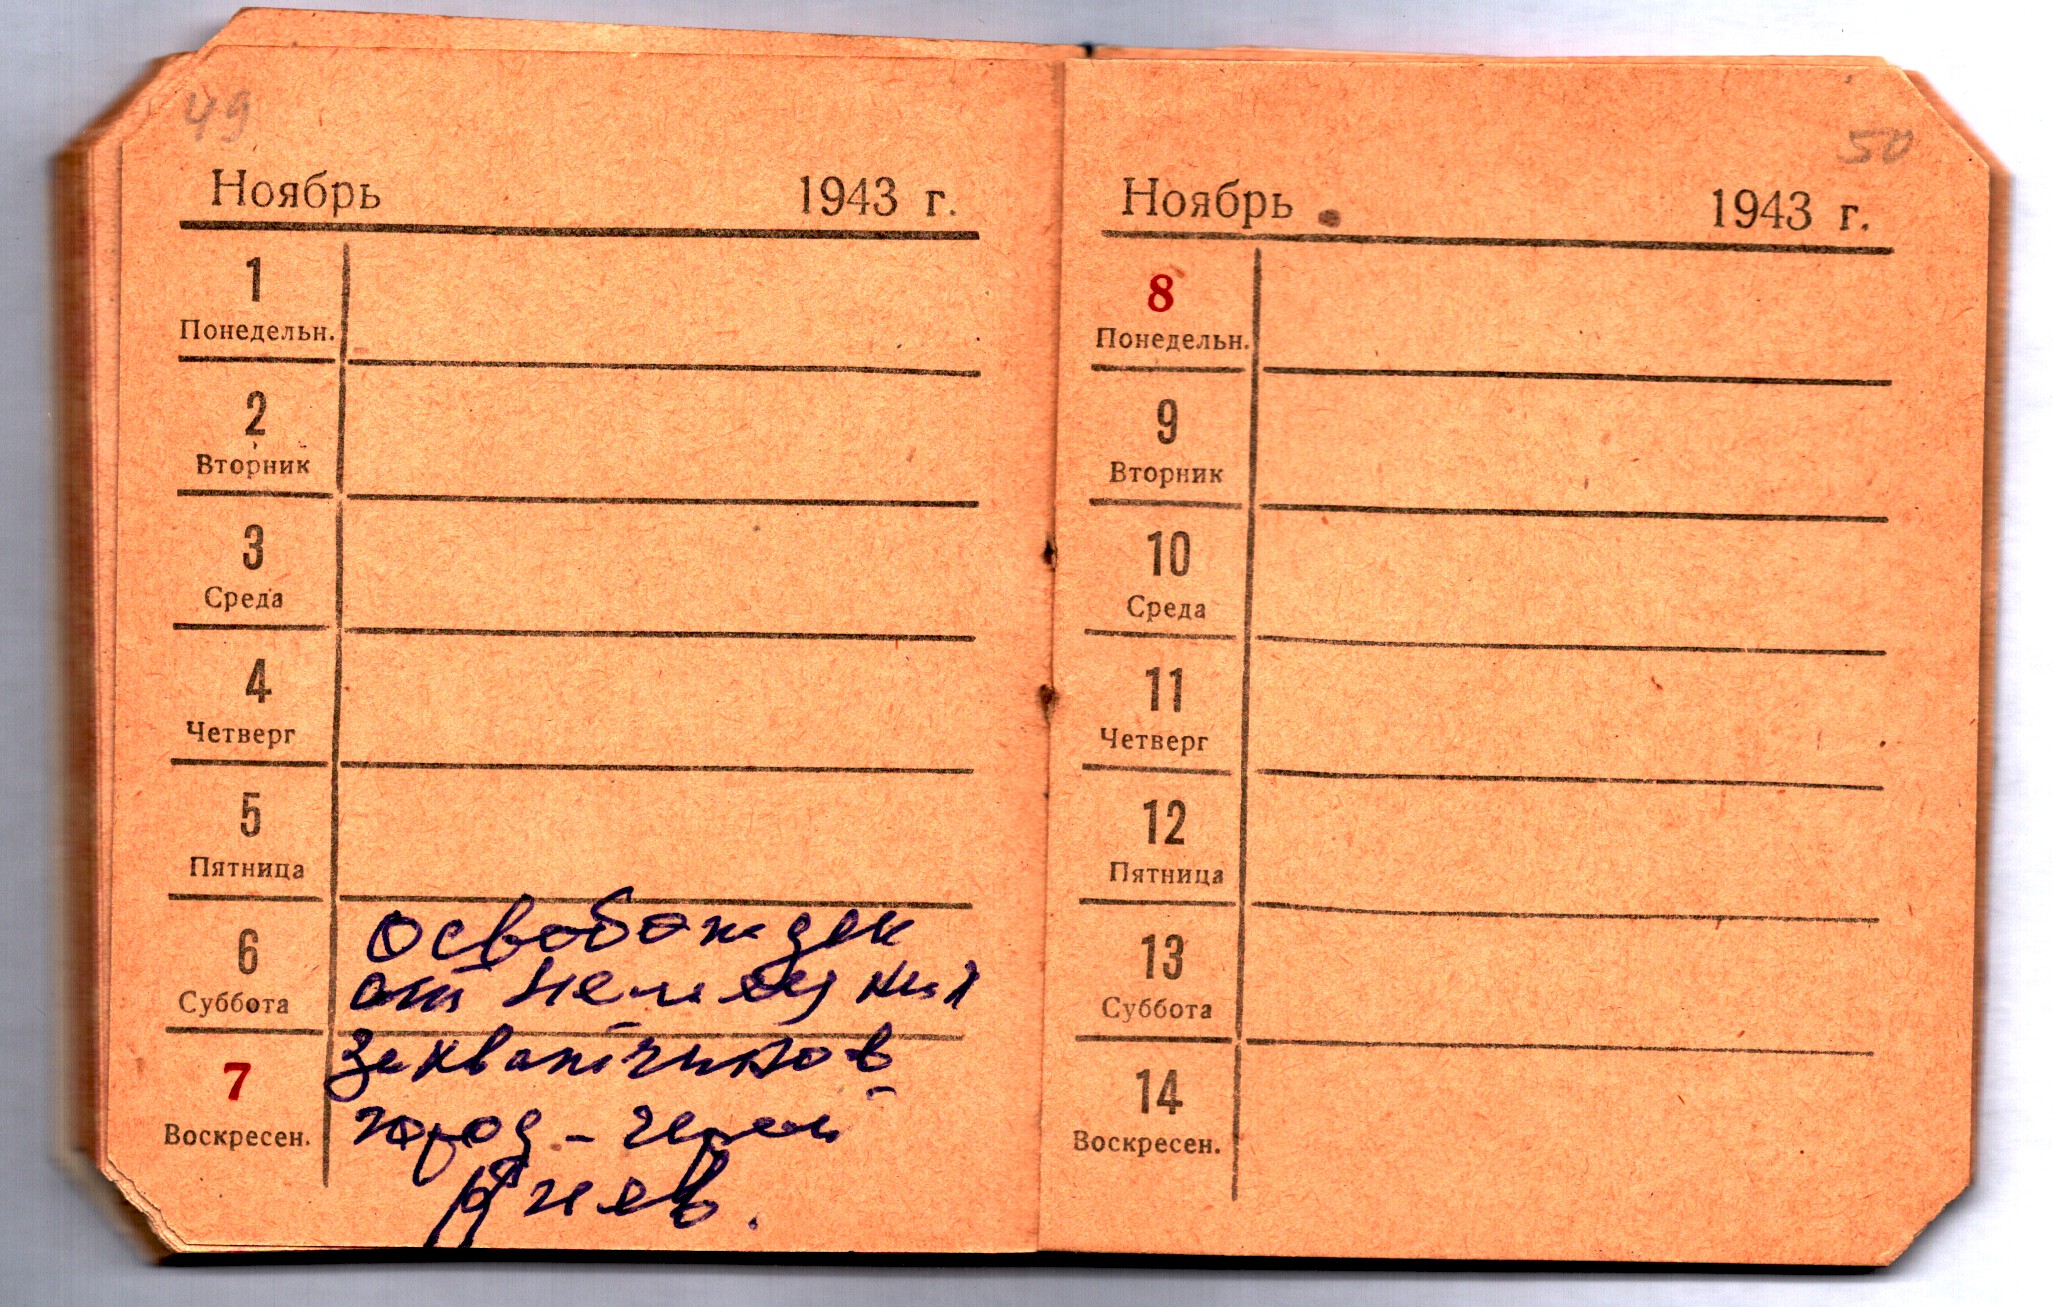 49
Ноябрь 1943 г.
1
Понедельн.
2
Вторник
3
Среда
4
Четверг
5
Пятница
6
Суббота
7
Воскресен.
Освобожден
от немецких
захватчиков
город - герой
Киев.
50
Ноябрь 1943 г.
8
Понедельн.
9
Вторник
10
Среда
11
Четверг
12
Пятница
13
Суббота
14
Воскресен.